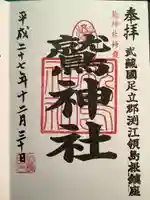 奉拝
武蔵國足立郡渕江領島根鎮座
鷲神社
平成二十七年十二月三十日